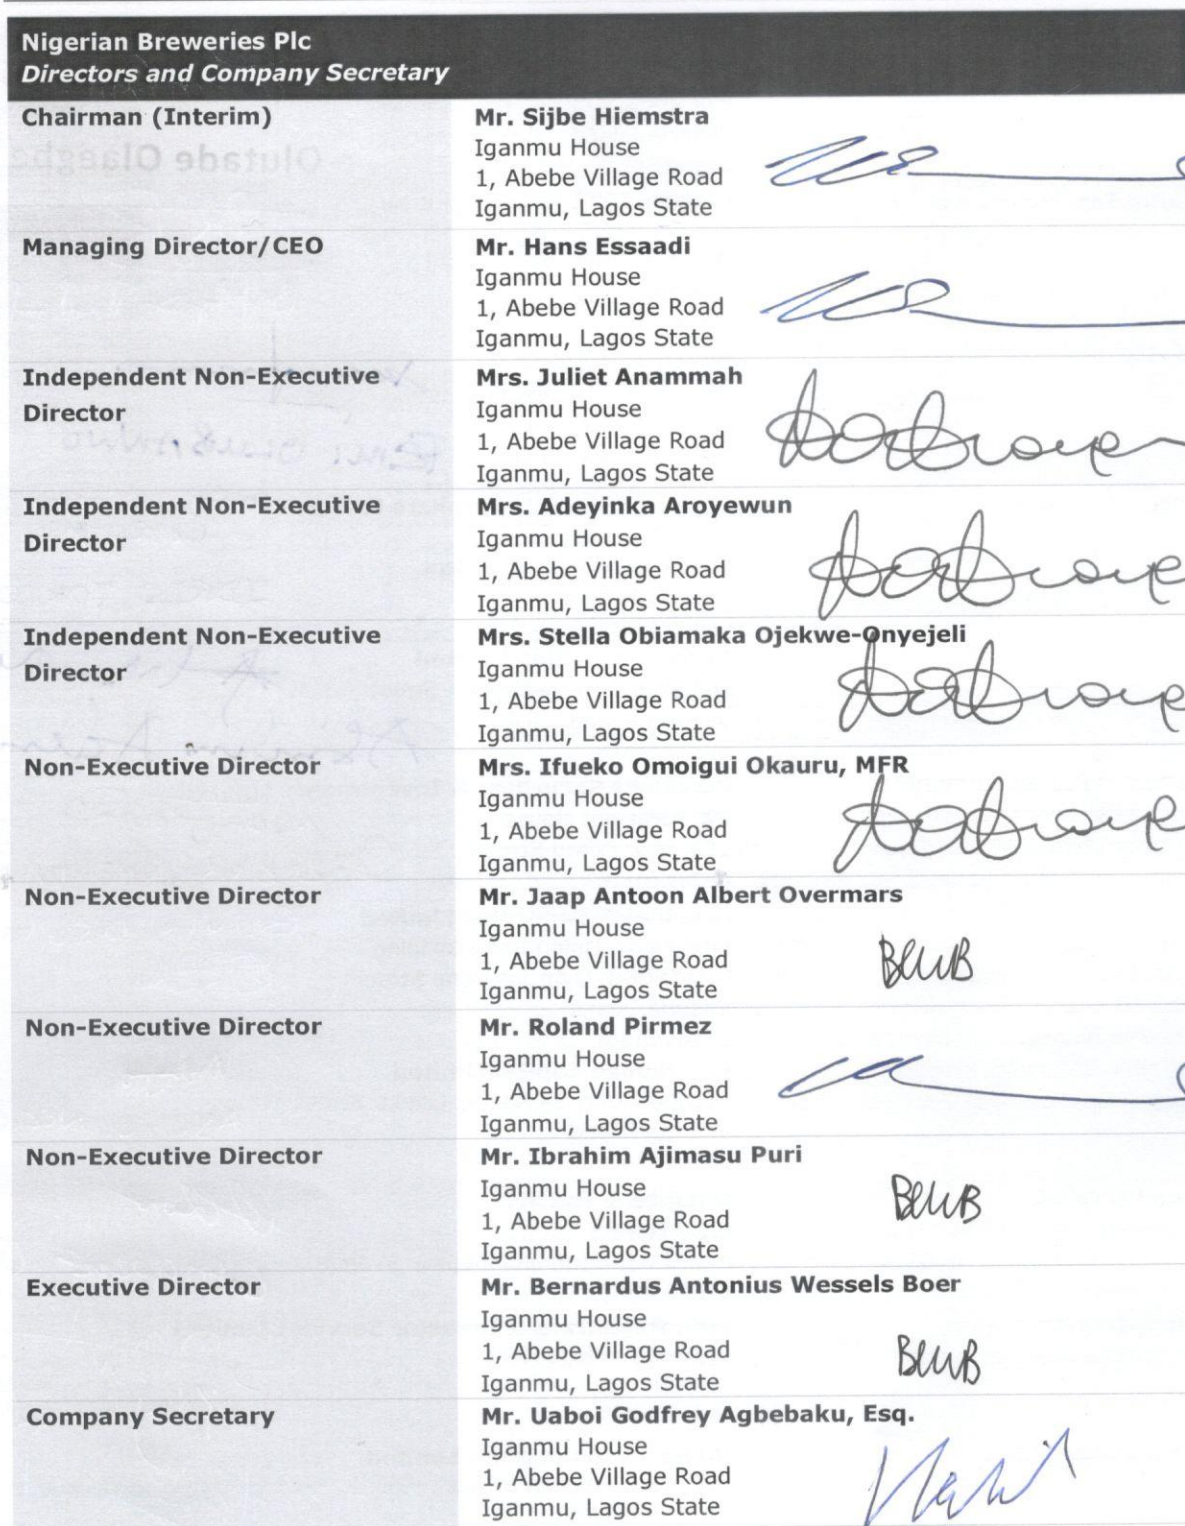 Nigerian Breweries Plc
Directors and Company Secretary
Chairman (Interim)
Mr. Sijbe Hiemstra
Iganmu House
1, Abebe Village Road
Iganmu, Lagos State
Managing Director/CEO
Mr. Hans Essaadi
Iganmu House
1, Abebe Village Road
Iganmu, Lagos State
Independent Non-Executive
Director
Mrs. Juliet Anammah
Iganmu House
1, Abebe Village Road
Iganmu, Lagos State
Independent Non-Executive
Director
Mrs. Adeyinka Aroyewun
Iganmu House
1, Abebe Village Road
Iganmu, Lagos State
Independent Non-Executive
Director
Mrs. Stella Obiamaka Ojekwe-Onyejeli
Iganmu House
1, Abebe Village Road
Iganmu, Lagos State
Non-Executive Director
Mrs. Ifueko Omoigui Okauru, MFR
Iganmu House
1, Abebe Village Road
Iganmu, Lagos State
Non-Executive Director
Mr. Jaap Antoon Albert Overmars
Iganmu House
1, Abebe Village Road
Iganmu, Lagos State
Non-Executive Director
Mr. Roland Pirmez
Iganmu House
1, Abebe Village Road
Iganmu, Lagos State
Non-Executive Director
Mr. Ibrahim Ajimasu Puri
Iganmu House
1, Abebe Village Road
Iganmu, Lagos State
Executive Director
Mr. Bernardus Antonius Wessels Boer
Iganmu House
1, Abebe Village Road
Iganmu, Lagos State
Company Secretary
Mr. Uaboi Godfrey Agbebaku, Esq.
Iganmu House
1, Abebe Village Road
Iganmu, Lagos State